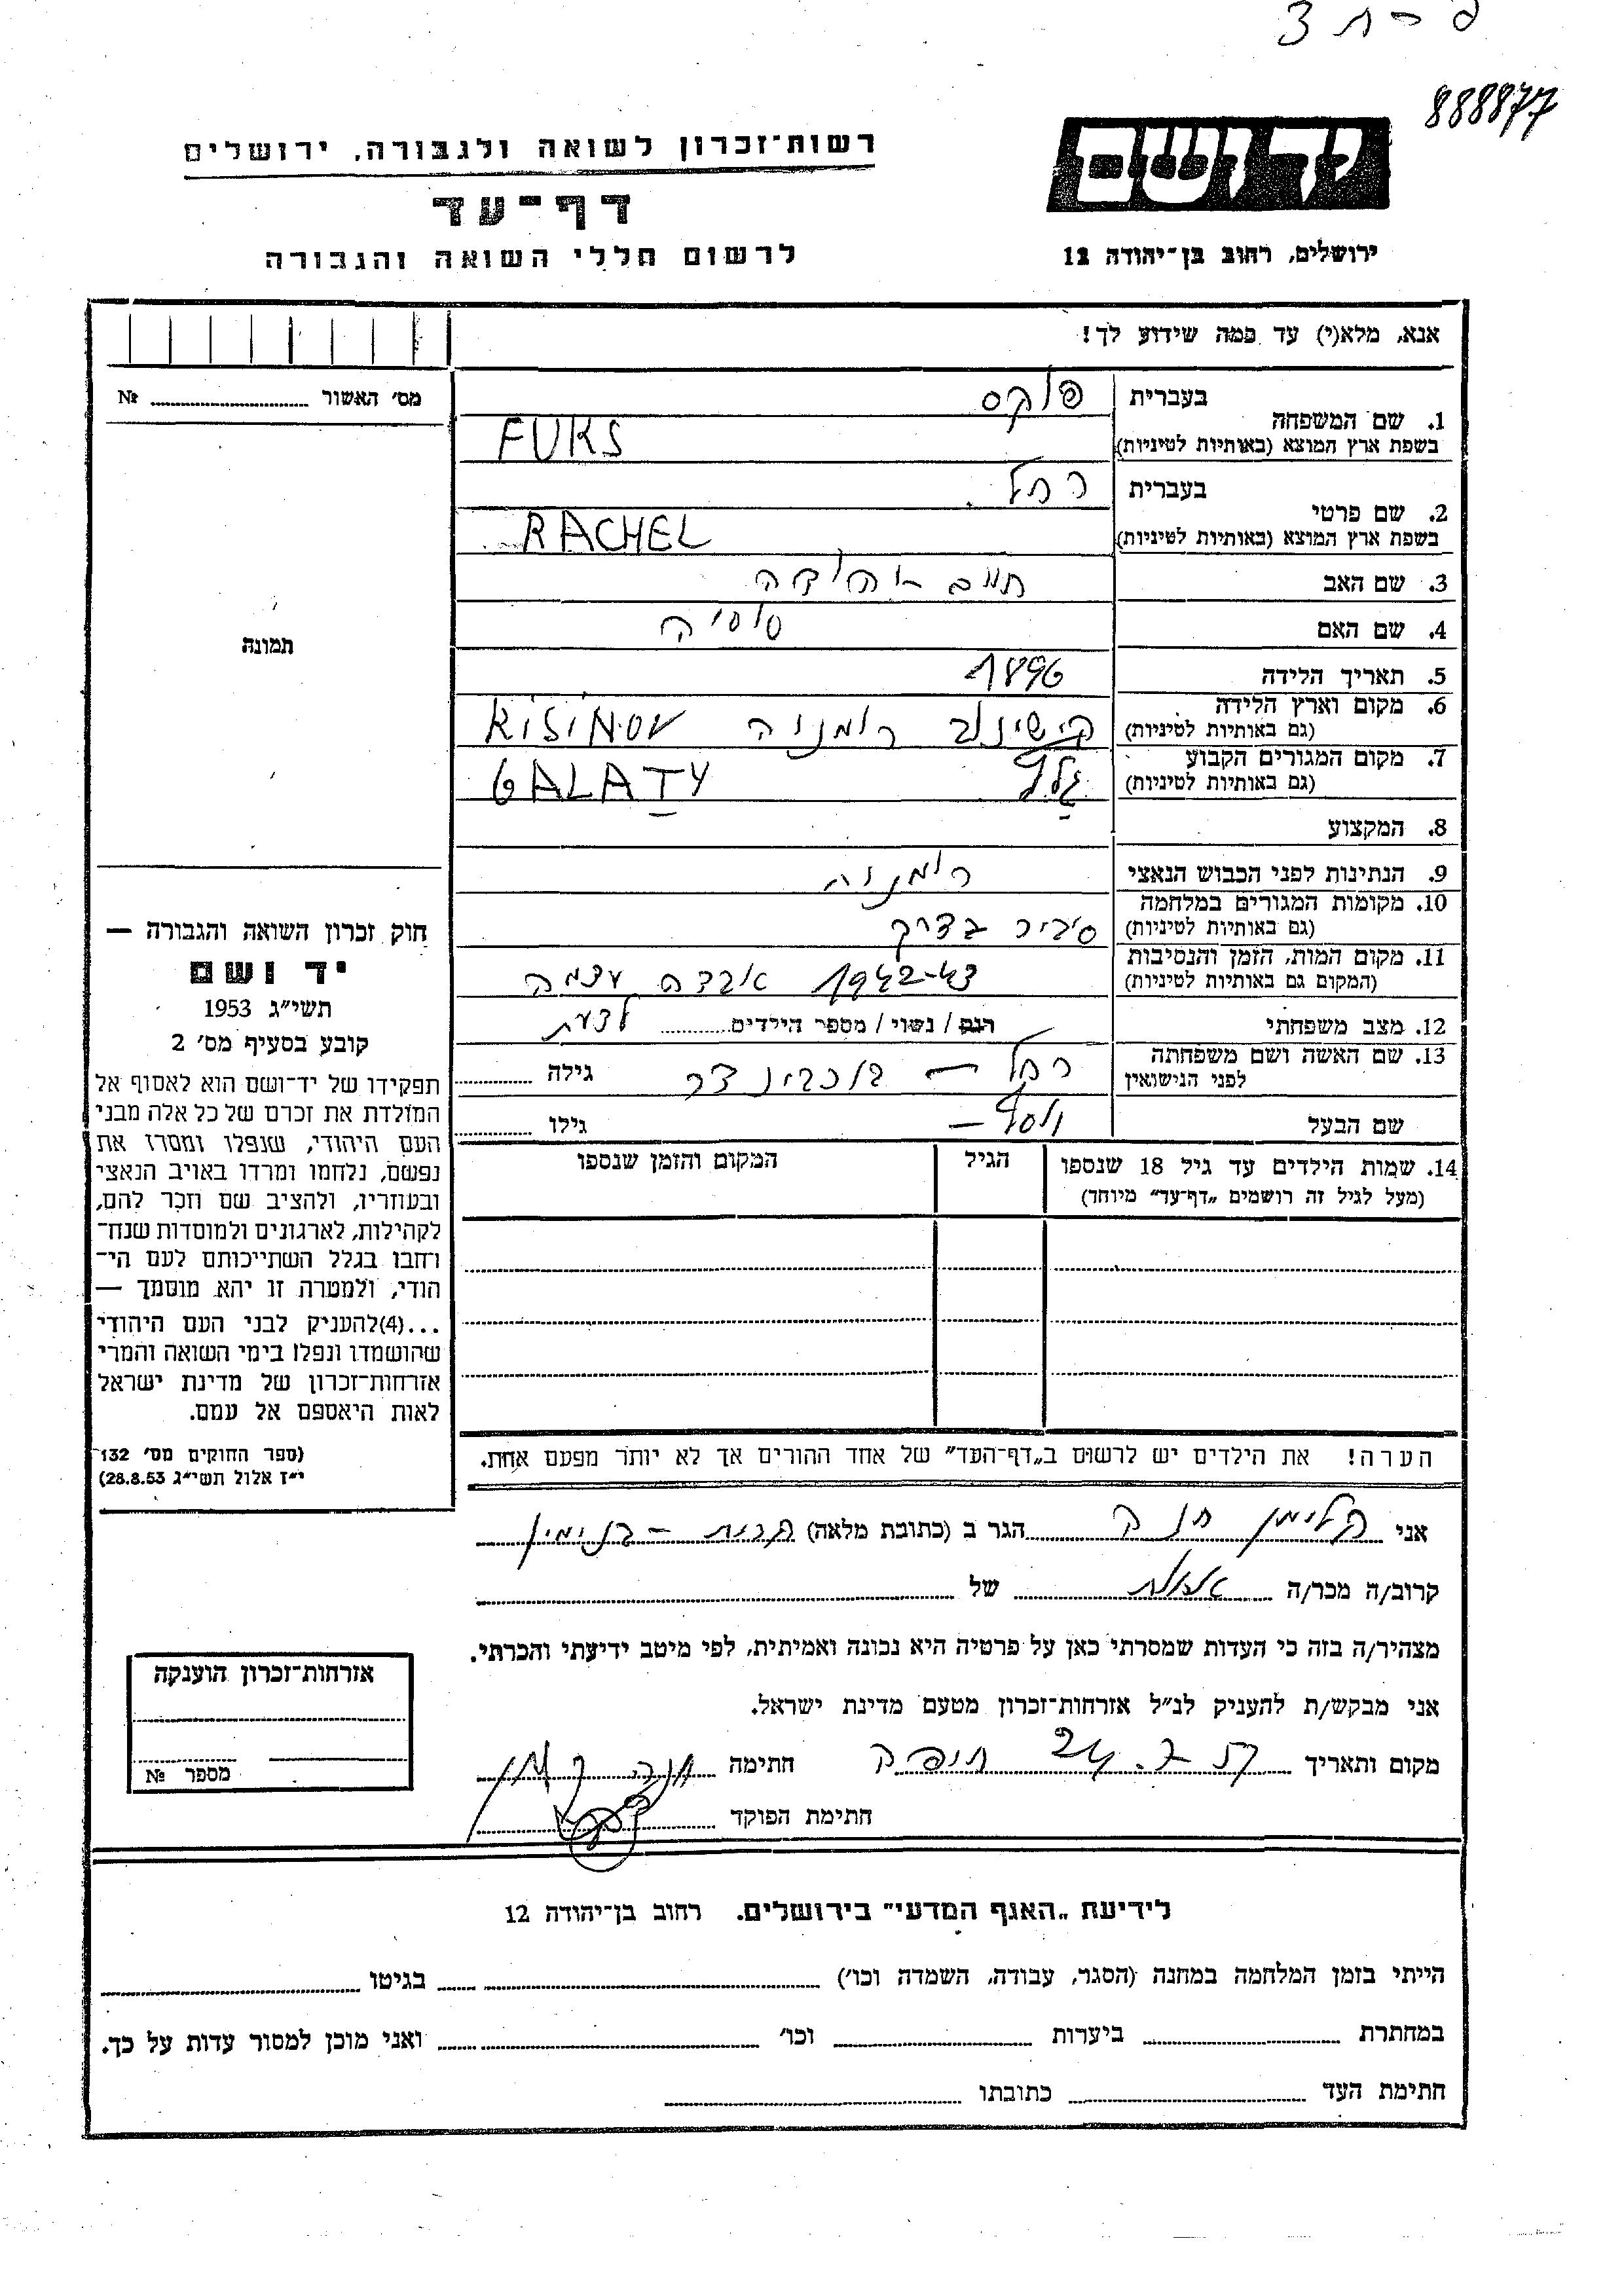 888877
יד ושם
ירושלים, רחוב בן־יהודה 12
רשות־זכרון לשואה ולגבורה, ירושלים
דף־עד
לרשום חללי השואה והגבורה
אנא, מלא(י) עד כמה שידוע לך!
מס׳ האשור № 
תמונה
1. שם המשפחה
בעברית פוקס
בשפת ארץ המוצא (באותיות לטיניות) FUKS
2. שם פרטי
בעברית רחל
בשפת ארץ המוצא (באותיות לטיניות) RACHEL
3. שם האב חיים יהודה
4. שם האם סוסיה
5. תאריך הלידה 1896
6. מקום וארץ הלידה קישינוב רומניה KIŠINOV
(גם באותיות לטיניות)
7. מקום המגורים הקבוע גלץ GALATY
(גם באותיות לטיניות)
8. המקצוע
9. הנתינות לפני הכבוש הנאצי רומניה
10. מקומות המגורים במלחמה סיביר בדרך
(גם באותיות לטיניות)
11. מקום המות, הזמן והנסיבות 1942-43 אבדה עצמה
(המקום גם באותיות לטיניות)
12. מצב משפחתי רווק / נשוי / מספר הילדים לדעת
13. שם האשה ושם משפחתה רחל – גילה
לפני הנישואין
שם הבעל יוסף – גילו
14. שמות הילדים עד גיל 18 שנספו הגיל המקום והזמן שנספו
(מעל לגיל זה רושמים „דף־עד״ מיוחד)
הערה! את הילדים יש לרשום ב„דף־העד״ של אחד ההורים אך לא יותר מפעם אחת.
חוק זכרון השואה והגבורה —
יד ושם
תשי״ג 1953
קובע בסעיף מס׳ 2
תפקידו של יד־ושם הוא לאסוף אל
המולדת את זכרם של כל אלה מבני
העם היהודי, שנפלו ומסרו את
נפשם, נלחמו ומרדו באויב הנאצי
ובעוזריו, ולהציב שם וזכר להם,
לקהילות, לארגונים ולמוסדות שנח־
רחבו בגלל השתייכותם לעם הי־
הודי, ולמטרה זו יהא מוסמך —
...(4)להעניק לבני העם היהודי
שהושמדו ונפלו בימי השואה והמרי
אזרחות־זכרון של מדינת ישראל
לאות היאספם אל עמם.
(ספר החוקים מס׳ 132
י״ז אלול תשי״ג 28.8.53)
אני קלימן חנה הגר ב (כתובת מלאה) קרית - בנימין
קרוב/ה מכר/ה של
מצהיר/ה בזה כי העדות שמסרתי כאן על פרטיה היא נכונה ואמיתית, לפי מיטב ידיעתי והכרתי.
אני מבקש/ת להעניק לנ״ל אזרחות־זכרון מטעם מדינת ישראל.
מקום ותאריך 24.7.57 חיפה חתימה
חתימת הפוקד
אזרחות־זכרון הוענקה
מספר №
לידיעת „האגף המדעי״ בירושלים. רחוב בן־יהודה 12
הייתי בזמן המלחמה במחנה (הסגר, עבודה, השמדה וכו׳) בגיטו
במחתרת ביערות וכו׳ ואני מוכן למסור עדות על כך.
חתימת העד כתובתו